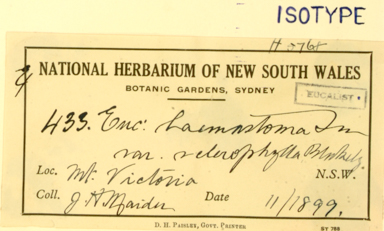 ISOTYPE
H 5768
NATIONAL HERBARIUM OF NEW SOUTH WALES
BOTANIC GARDENS, SYDNEY
EUCALIST
433. Euc. haemastoma Sm
var. sclerophylla Blakely
Loc. Mt. Victoria N.S.W.
Coll. J. H. Maiden Date 11/1899.
D. H. PAISLEY, GOVT. PRINTER